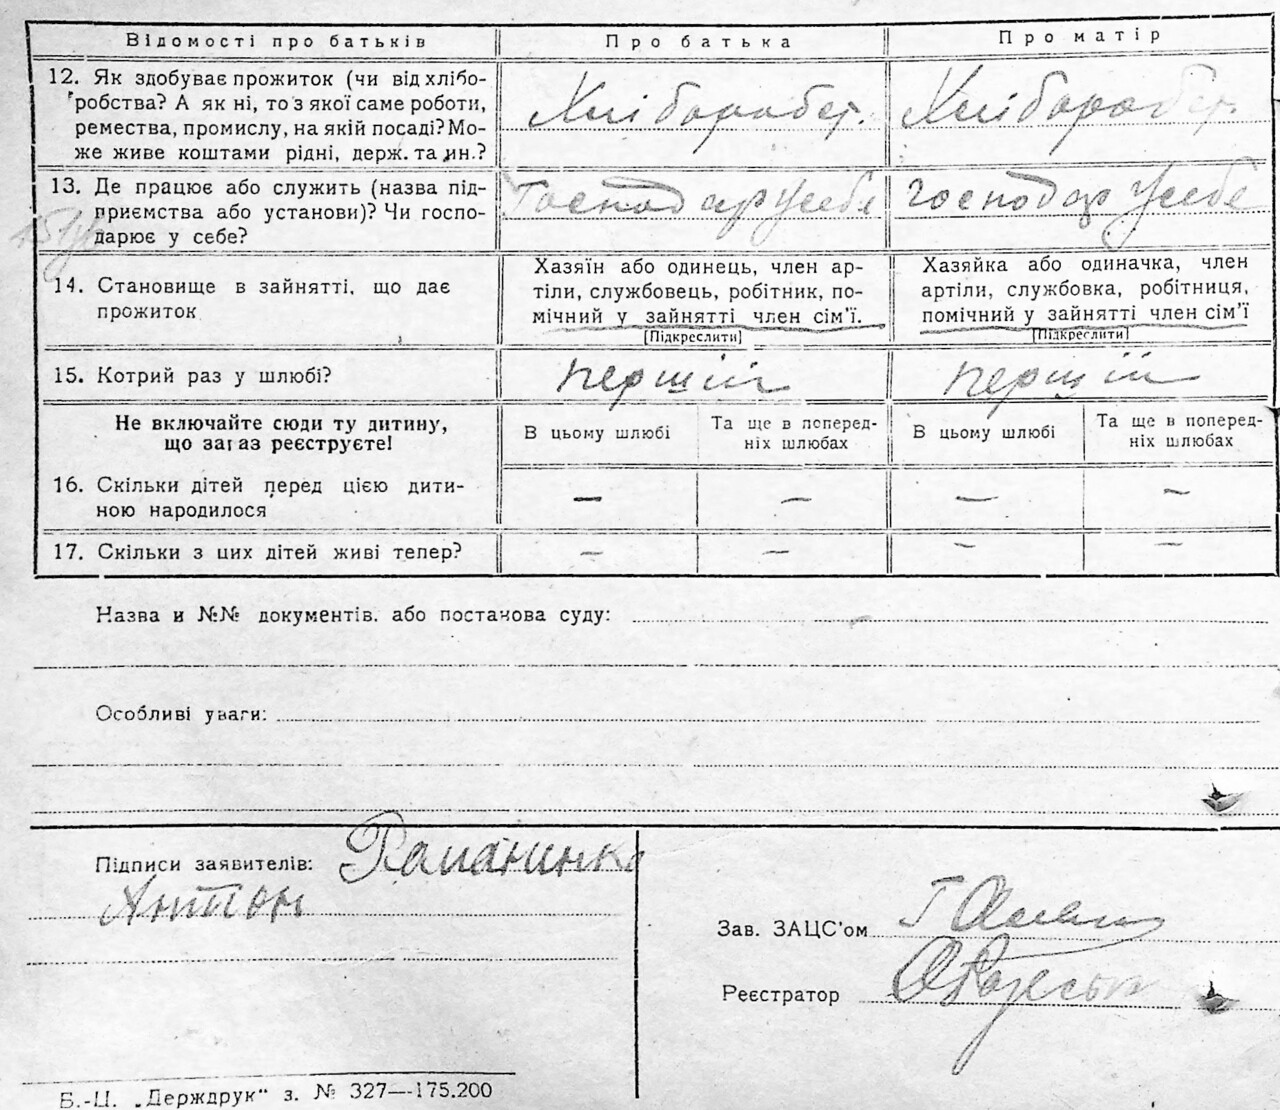 Відомості про батьків Про батька Про матір
12. Як здобуває прожиток (чи від хлібо-
робства? А як ні, то з якої саме роботи,
ремества, промислу, на якій посаді? Мо-
же живе коштами рідні, держ. та ин.?
Хліборобст. Хліборобст.
13. Де працює або служить (назва під-
приємства або установи)? Чи госпо-
дарює у себе?
Господар у себе господар у себе
14. Становище в зайнятті, що дає
прожиток
Хазяїн або одинець, член ар-
тіли, службовець, робітник, по-
мічний у зайнятті член сім'ї.
[Підкреслити]
Хазяйка або одиначка, член
артіли, службовка, робітниця,
помічний у зайнятті член сім'ї
[Підкреслити]
15. Котрий раз у шлюбі? перший перший
Не включайте сюди ту дитину,
що зараз реєструєте!
В цьому шлюбі
Та ще в поперед-
ніх шлюбах
В цьому шлюбі
Та ще в поперед-
ніх шлюбах
16. Скільки дітей перед цією дити-
ною народилося
— — — —
17. Скільки з цих дітей живі тепер? — — — —
Назва и №№ документів. або постанова суду:
Особливі уваги:
Підписи заявителів: Раманинко
Антон
Зав. ЗАЦС'ом
Реєстратор
Б.-Ц. „Держдрук" з. № 327—175.200